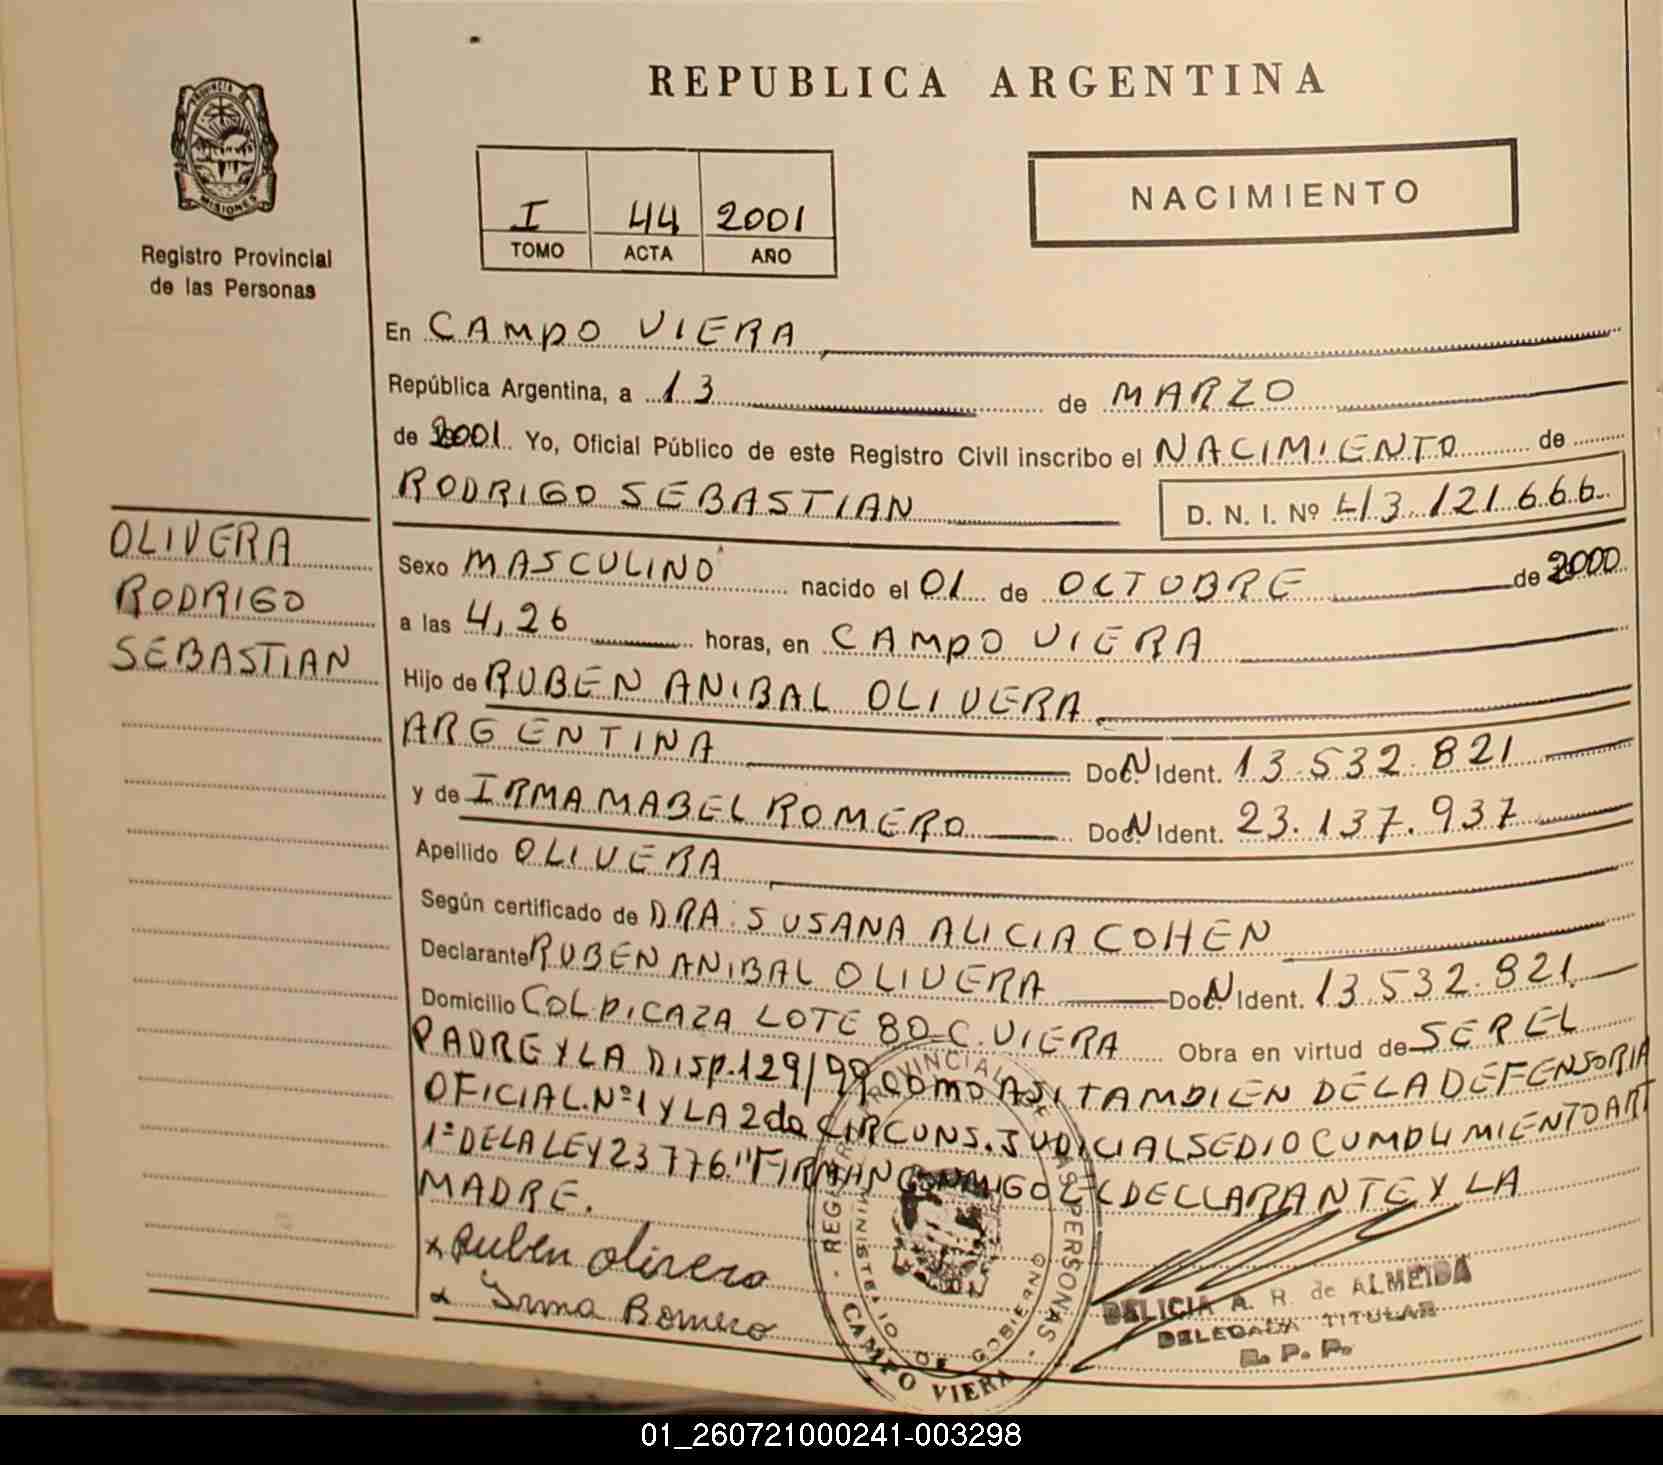 PROVINCIA DE
MISIONES
Registro Provincial
de las Personas
REPUBLICA ARGENTINA
I 44 2001
TOMO ACTA AÑO
NACIMIENTO
En CAMPO VIERA
República Argentina, a 13 de MARZO
de 2001 Yo, Oficial Público de este Registro Civil inscribo el NACIMIENTO de
RODRIGO SEBASTIAN D. N. I. Nº 43.121.666
OLIVERA
RODRIGO
SEBASTIAN
Sexo MASCULINO nacido el 01 de OCTUBRE de 2000
a las 4,26 horas, en CAMPO VIERA
Hijo de RUBEN ANIBAL OLIVERA
ARGENTINA Doc. N Ident. 13.532.821
y de IRMA MABEL ROMERO Doc. N Ident. 23.137.937
Apellido OLIVERA
Según certificado de DRA. SUSANA ALICIA COHEN
Declarante RUBEN ANIBAL OLIVERA Doc. N Ident. 13.532.821
Domicilio COL. PICAZA LOTE 80-C. VIERA Obra en virtud de SER EL
PADRE Y LA DISP. 129/99 COMO ASI TAMBIEN DE LA DEFENSORIA
OFICIAL Nº 1 Y LA 2da CIRCUNS. JUDICIAL SE DIO CUMPLIMIENTO ART
1º DE LA LEY 23776 "FIRMAN CONMIGO EL DECLARANTE Y LA
MADRE.
x Ruben Olivera
x Irma Romero
REGISTRO PROVINCIAL DE LAS PERSONAS
MINISTERIO DE GOBIERNO
CAMPO VIERA
DELICIA A. R. de ALMEIDA
DELEGADA TITULAR
R. P. P.
01_260721000241-003298